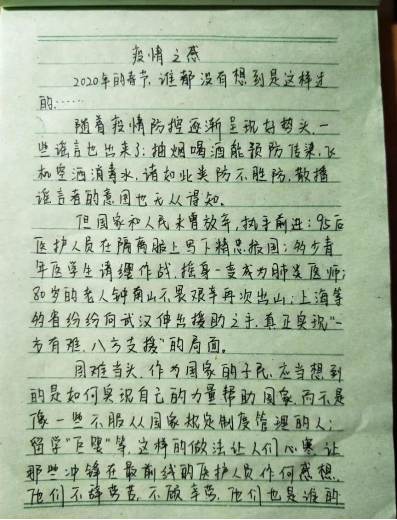 疫情之感
2020年的春节,谁都没有想到是这样过
的……
随着疫情防控逐渐呈现好势头,一
些谣言也出来了:抽烟喝酒能预防传染,飞
机空洒消毒水,诸如此类防不胜防,散播
谣言者的意图也无从得知。
但国家和人民未曾放弃,执手前进:95后
医护人员在隔离服上写下精忠报国;多少青
年医学生请缨作战,摇身一变成为肺炎医师;
80岁的老人钟南山不畏艰辛再次出山;上海等
的省纷纷向武汉伸出援助之手,真正实现“一
方有难,八方支援”的局面。
困难当头,作为国家的子民,应当想到
的是如何实现自己的力量帮助国家,而不是
像一些不服从国家规定制度管理的人;
留学“巨婴”等,这样的做法让人们心寒,让
那些冲锋在最前线的医护人员作何感想,
他们不辞劳苦,不破辛劳,他们也是谁的